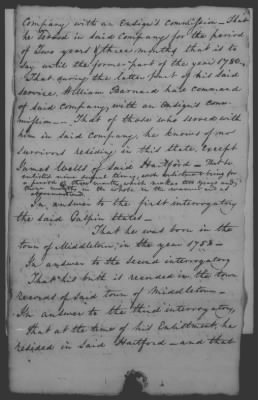 Company, with an Ensign's commission — That
he served in said company for the period
of Two years & three months, that is to
say until the former part of the year 1780.
That during the latter part of his said
service, William Barnard had command
of said company, with an Ensigns com-
mission — That of those who served with
him in said company, he knows of no
survivors residing in this State, except
James Wells of said Hartford — That he
enlisted nine times, each enlistment being for
a period of three months, which makes two years and
three months in the whole, in the manner and as
In answer to the first interrogatory
the said Galpin states —
That he was born in the
town of Middletown, in the year 1758 —
In answer to the second interrogatory
That his birth is recorded in the town
records of said town of Middletown —
In answer to the third interrogatory,
That at the time of his Enlistment, he
resided in said Hartford — and that